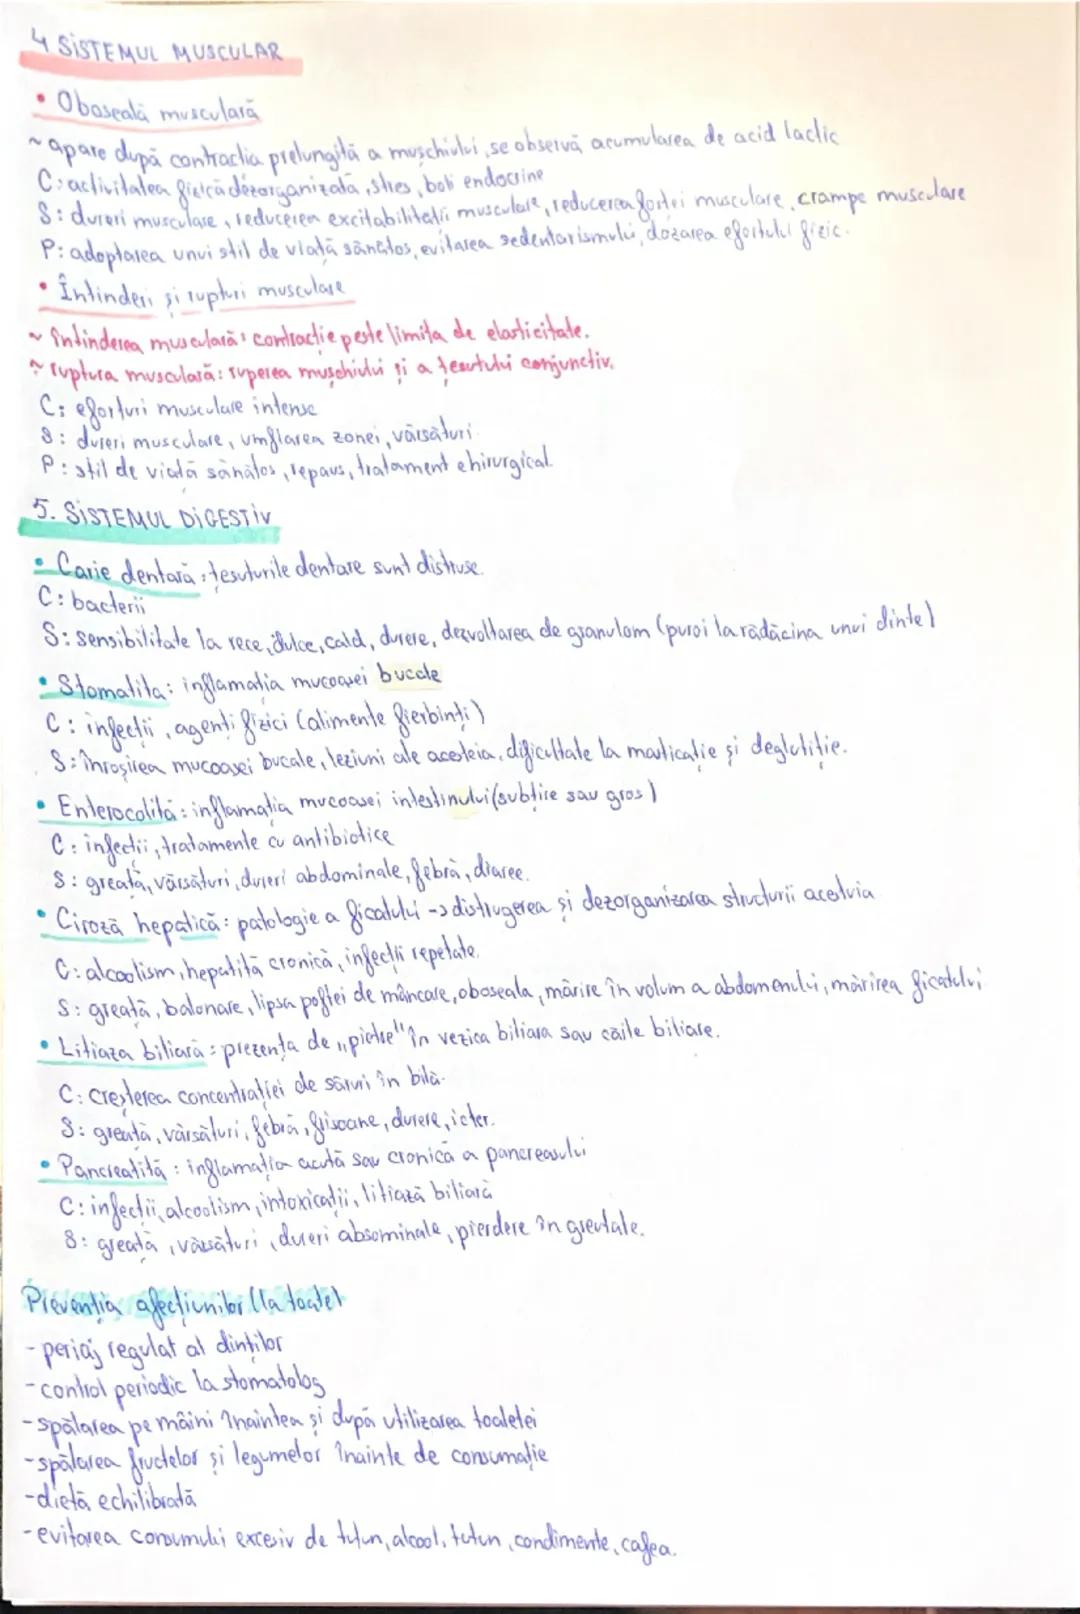 4 SISTEMUL MUSCULAR
• Oboseală musculară
~ apare după contracția prelungită a mușchiului, se observă acumularea de acid lactic
C: activitatea fizică dezorganizată, stres, boli endocrine
S: dureri musculare, reducerea excitabilității musculare, reducerea forței musculare, crampe musculare
P: adoptarea unui stil de viață sănătos, evitarea sedentarismului, dozarea efortului fizic.
• Întinderi și rupturi musculare
~ întinderea musculară: contracție peste limita de elasticitate.
~ ruptura musculară: ruperea mușchiului și a țesutului conjunctiv.
C: eforturi musculare intense
S: dureri musculare, umflarea zonei, vărsături
P: stil de viață sănătos, repaus, tratament chirurgical.
5. SISTEMUL DIGESTIV
• Carie dentară: țesuturile dentare sunt distruse.
C: bacterii
S: sensibilitate la rece, dulce, cald, durere, dezvoltarea de granulom (puroi la rădăcina unui dinte)
• Stomatita: inflamația mucoasei bucale
C: infecții, agenți fizici (alimente fierbinți)
S: înroșirea mucoasei bucale, leziuni ale acesteia, dificultate la masticație și deglutiție.
• Enterocolită: inflamația mucoasei intestinului (subțire sau gros)
C: infecții, tratamente cu antibiotice
S: greață, vărsături, dureri abdominale, febră, diaree.
• Ciroză hepatică: patologie a ficatului -> distrugerea și dezorganizarea structurii acestuia
C: alcoolism, hepatită cronică, infecții repetate.
S: greață, balonare, lipsa poftei de mâncare, oboseala, mărire în volum a abdomenului, mărirea ficatului
• Litiaza biliară: prezența de „pietre" în vezica biliara sau căile biliare.
C: creșterea concentrației de săruri în bilă.
S: greață, vărsături, febră, frisoane, durere, icter.
• Pancreatită: inflamația acută sau cronică a pancreasului
C: infecții, alcoolism, intoxicații, litiază biliară
S: greață, vărsături, dureri absominale, pierdere în greutate.
Prevenția afecțiunilor (la toate)
- periaj regulat al dinților
- control periodic la stomatolog
- spălarea pe mâini înaintea și după utilizarea toaletei
- spălarea fructelor și legumelor înainte de consumație
- dietă echilibrată
- evitarea consumului excesiv de tutun, alcool, tutun, condimente, cafea.